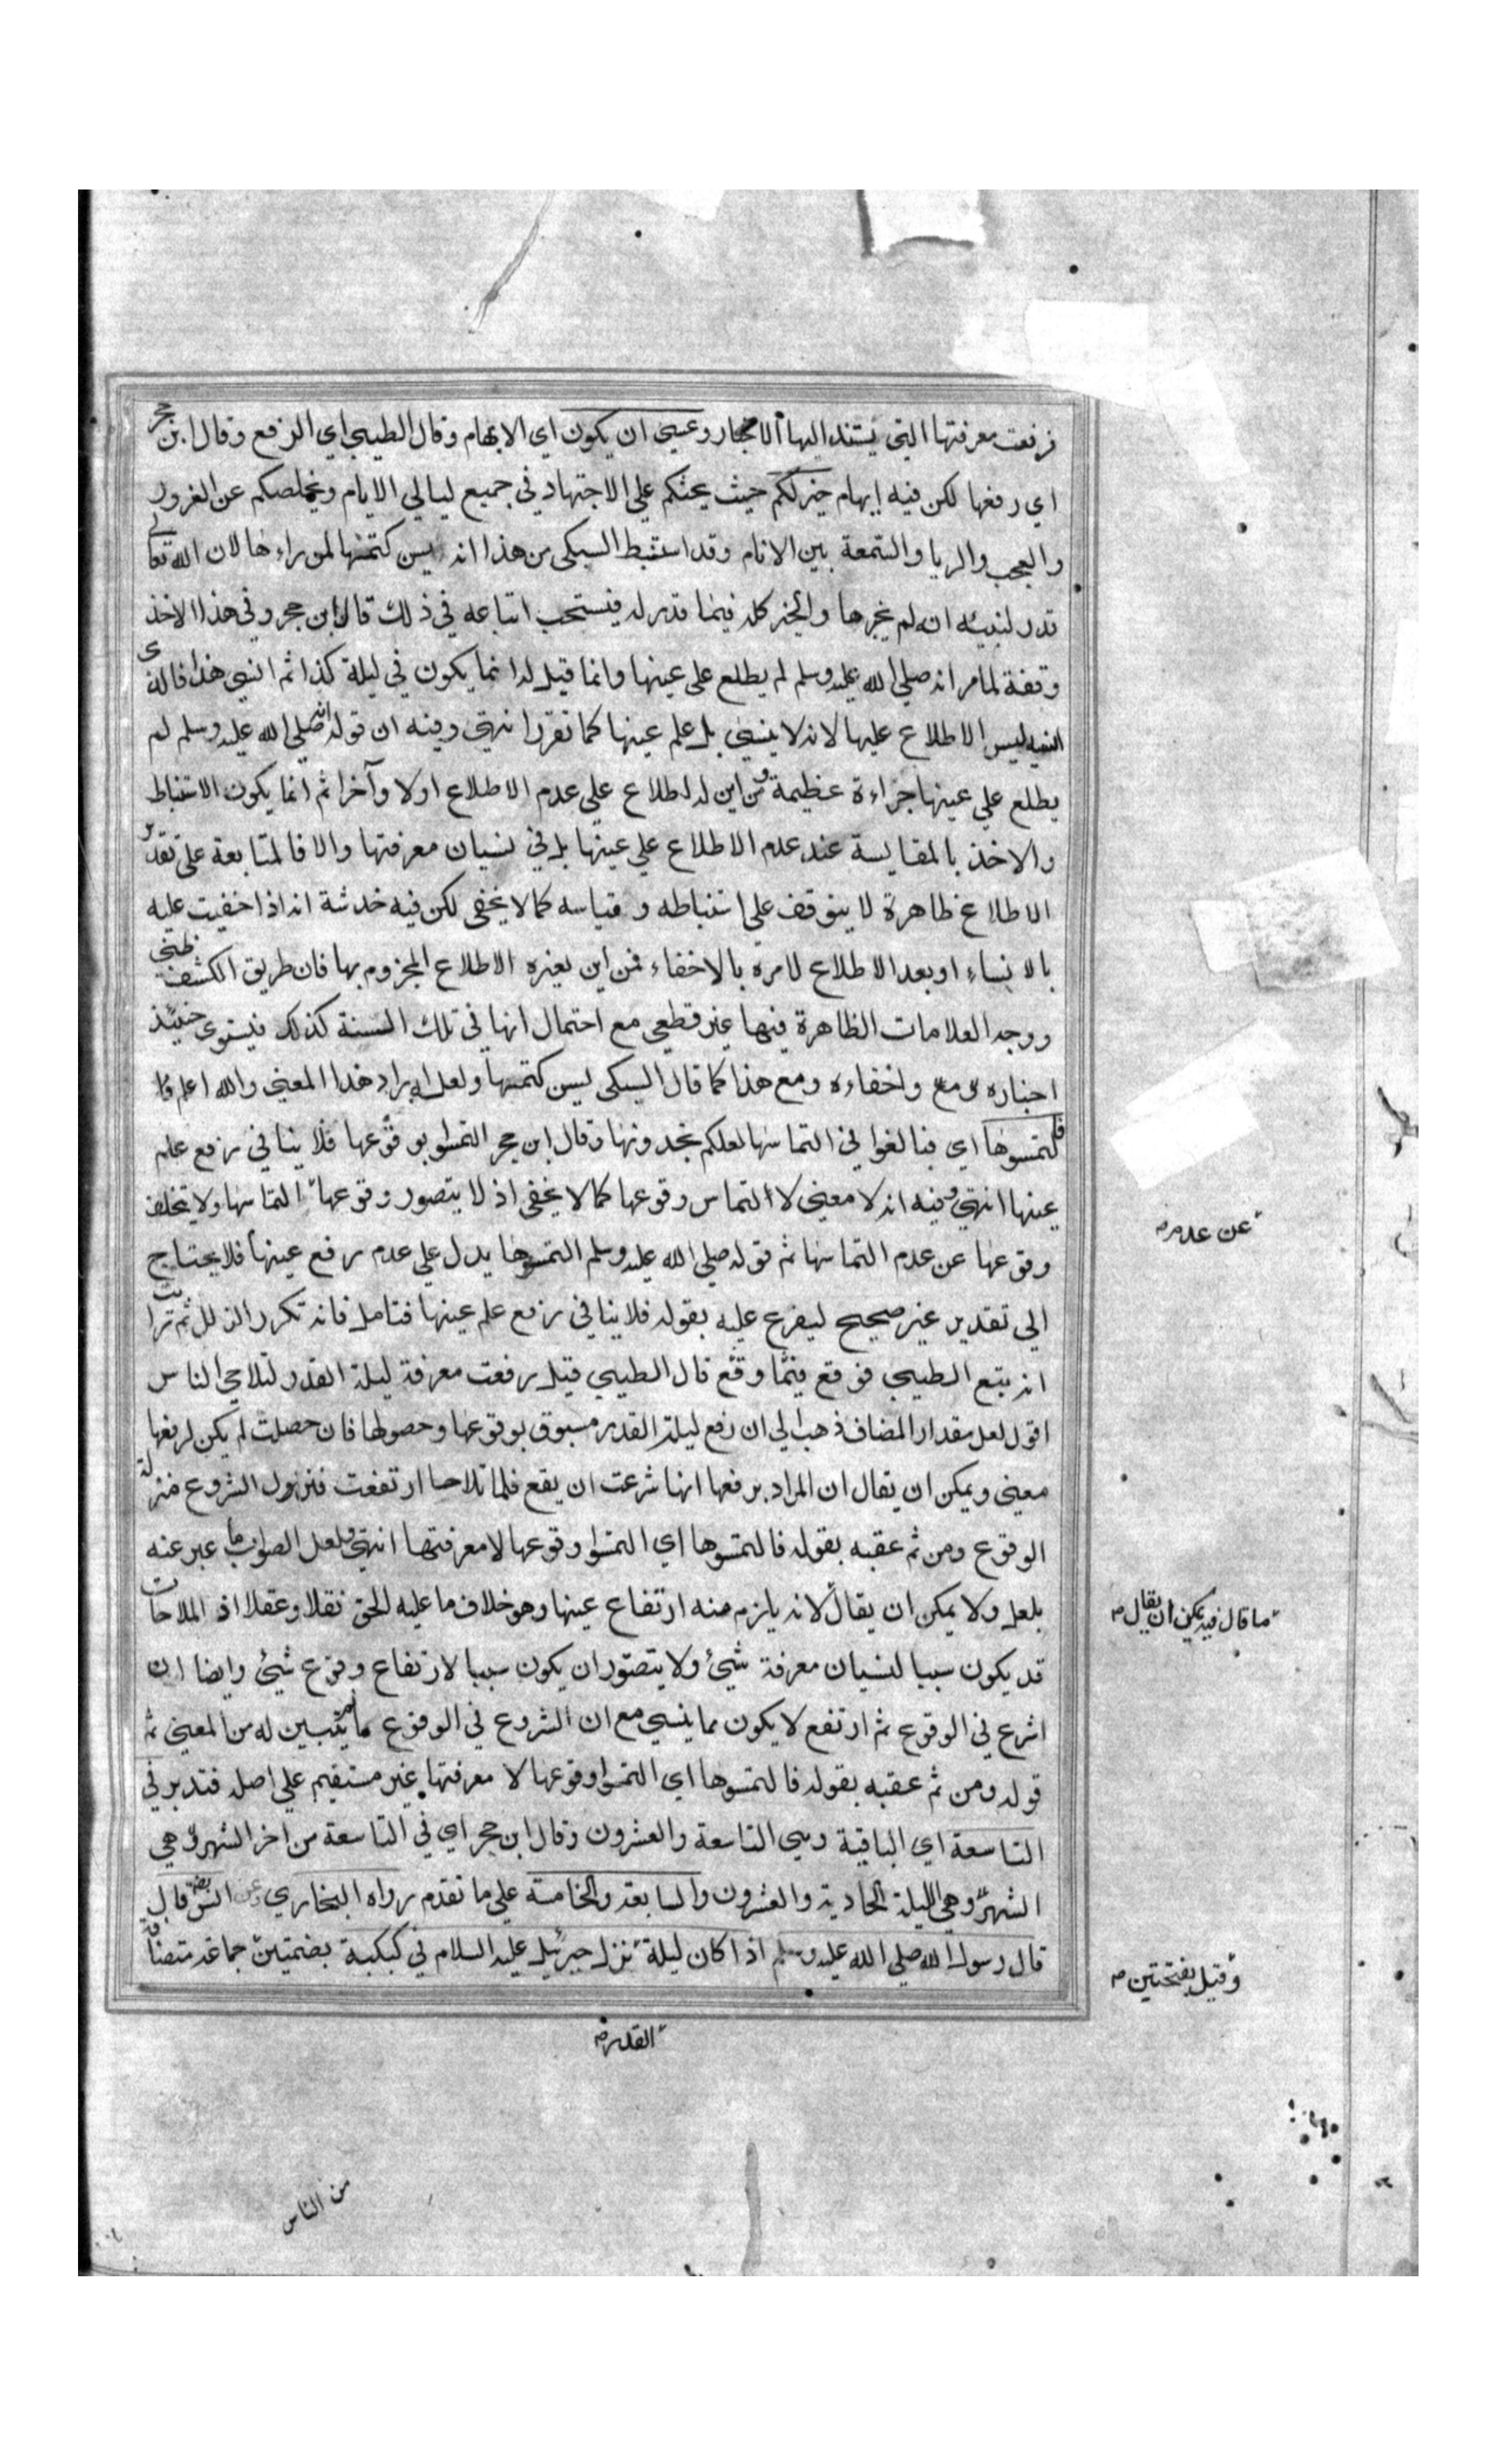 فرفعت معرفتها التي يستند اليها الاخبار وعسى ان يكون اي الابهام وقال الطيبي اي الرفع وقال ابن حجر
اي رفعها لكن فيه ابهام خير لكم حيث يحثكم علي الاجتهاد في جميع ليالي الايام ويخلصكم عن الغرور
والعجب والريا والسمعة بين الانام وقد استنبط السبكي من هذا انه يسن كتمها لمن راءها لان الله تعالى
قدر لنبيه انه لم يخبر بها والخير كله فيما قدر له فيستحب اتباعه في ذلك قال ابن حجر وفي هذا الاخذ
وقفة لما مر انه صلي الله عليه وسلم لم يطلع على عينها وانما قيل له انما يكون في ليلة كذا ثم انسي هذا فالذي
انسيه ليس الاطلاع عليها لانه لا ينسى بل علم عينها كما تقرر انتهى وفيه ان قوله انه صلي الله عليه وسلم لم
يطلع علي عينها جراءة عظيمة ومن اين له اطلاع علي عدم الاطلاع اولا وآخرا ثم انما يكون الاستنباط
والاخذ بالمقايسة عند عدم الاطلاع علي عينها بل في نسيان معرفتها والا فالمتابعة على تقدير
الاطلاع ظاهرة لا يتوقف علي استنباطه وقياسه كما لا يخفى لكن فيه خدشة انه اذا خفيت عليه
بالانساء او بعد الاطلاع لامره بالاخفاء فمن اين لغيره الاطلاع المجزوم بها فان طريق الكشف ظني
ووجد العلامات الظاهرة فيها غير قطعي مع احتمال انها في تلك السنة كذلك فيستوي حينئذ
اخباره مع واخفاءه ومع هذا كما قال السبكي يسن كتمها ولعله اراد هذا المعنى والله اعلم
فالتمسوها اي فبالغوا في التماسها لعلكم تجدونها وقال ابن حجر التمسوا بوقوعها فلا ينافي رفع علم
عينها انتهى وفيه انه لا معنى لا التماس وقوعها كما لا يخفى اذ لا يتصور وقوعها التماسها ولا يتخلف
عن عدم
وقوعها عن عدم التماسها ثم قوله صلي الله عليه وسلم التمسوها يدل علي عدم رفع عينها فلا يحتاج
الى تقدير غير صحيح ليفرع عليه بقوله فلا ينافي رفع علم عينها فتامل فانه تكرر الزلل ثم رايت
انه تبع الطيبي فوقع فيما وقع قال الطيبي قيل رفعت معرفة ليلة القدر لتلاحي الناس
اقول لعل مقدر المضاف ذهب الي ان رفع ليلة القدر مسبوق بوقوعها وحصولها فان حصلت لم يكن لرفعها
معنى ويمكن ان يقال ان المراد برفعها انها شرعت ان يقع فلما تلاحيا ارتفعت فنزول الشروع منزلة
الوقوع ومن ثم عقبه بقوله فالتمسوها اي التمسوا وقوعها لا معرفتها انتهى ولعل الصواب ما عبر عنه
بلعل ولا يمكن ان يقال لانه يلزم منه ارتفاع عينها وهو خلاف ما عليه الحق نقلا وعقلا اذ الملاحات
ما قال فيه يمكن ان يقال
قد يكون سببا لنسيان معرفة شيئ ولا يتصور ان يكون سببا لارتفاع وقوع شيئ وايضا ان
اشرع في الوقوع ثم ارتفع لا يكون مما ينسى مع ان الشروع في الوقوع مما لم يتبين له من المعنى ثم
قوله ومن ثم عقبه بقوله فالتمسوها اي التمسوا وقوعها لا معرفتها غير مستقيم علي اصله فتدبر في
التاسعة اي الباقية وهي التاسعة والعشرون وقال ابن حجر اي في التاسعة من اخر الشهر وهي
الشهر وهي الليلة الحادية والعشرون والسابعة والخامسة علي ما تقدم رواه البخاري وعن انس قال
قال رسول الله صلي الله عليه وسلم اذا كان ليلة نزل جبرئيل عليه السلام في كبكبة بضمتين جماعة متضامة
وقيل بفتحتين
القدر
من الناس